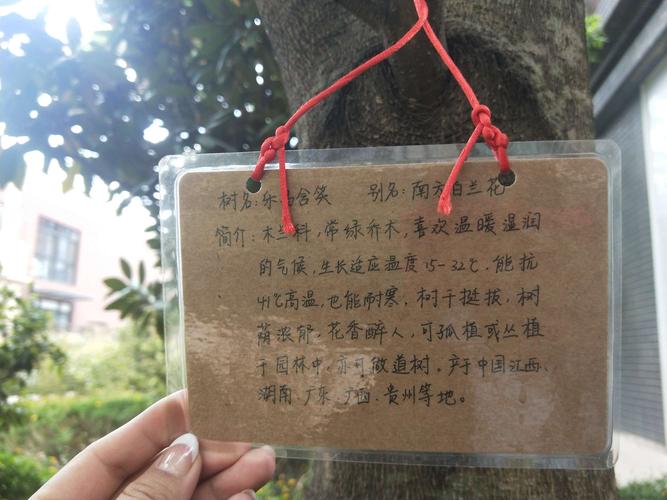 树名:乐昌含笑 别名:南方白兰花
简介:木兰科,常绿乔木,喜欢温暖湿润
的气候,生长适应温度15-32℃,能抗
41℃高温,也能耐寒,树干挺拔,树
荫浓郁,花香醉人,可孤植或丛植
于园林中,亦可做道树。产于中国江西、
湖南、广东、广西、贵州等地。